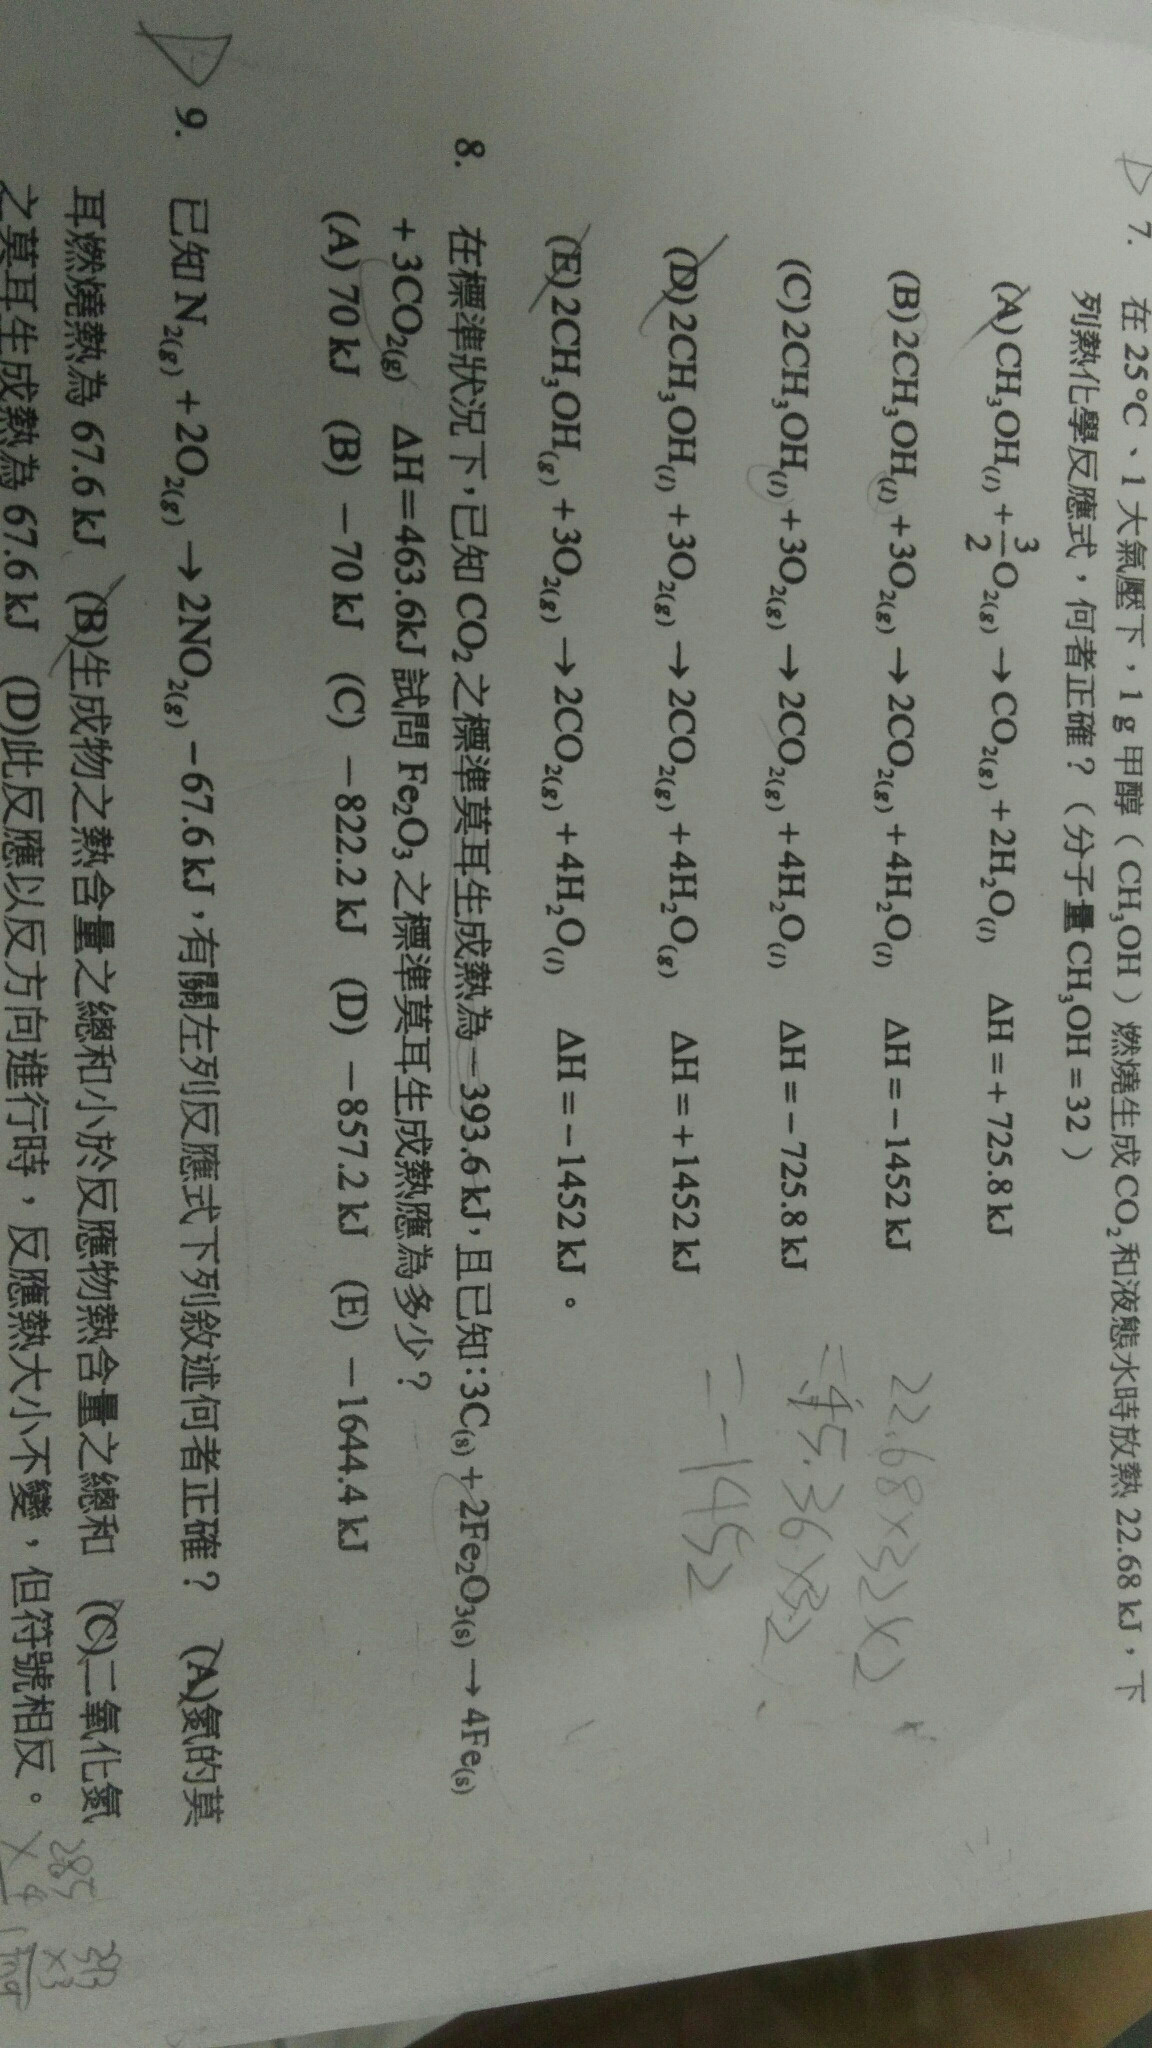 7. 在25°C、1大氣壓下，1g甲醇（CH₃OH）燃燒生成CO₂和液態水時放熱22.68 kJ，下
列熱化學反應式，何者正確？（分子量CH₃OH＝32）
(A) CH₃OH₍l₎ + 3/2 O₂₍g₎ → CO₂₍g₎ + 2H₂O₍l₎ ΔH = + 725.8 kJ
(B) 2CH₃OH₍l₎ + 3O₂₍g₎ → 2CO₂₍g₎ + 4H₂O₍l₎ ΔH = − 1452 kJ
(C) 2CH₃OH₍l₎ + 3O₂₍g₎ → 2CO₂₍g₎ + 4H₂O₍l₎ ΔH = − 725.8 kJ
(D) 2CH₃OH₍l₎ + 3O₂₍g₎ → 2CO₂₍g₎ + 4H₂O₍g₎ ΔH = + 1452 kJ
(E) 2CH₃OH₍g₎ + 3O₂₍g₎ → 2CO₂₍g₎ + 4H₂O₍l₎ ΔH = − 1452 kJ。
22.68×32×2
=45.36×32
=-1452
8. 在標準狀況下，已知CO₂之標準莫耳生成熱為−393.6 kJ，且已知：3C₍s₎ + 2Fe₂O₃₍s₎ → 4Fe₍s₎
+ 3CO₂₍g₎ ΔH＝463.6kJ 試問Fe₂O₃之標準莫耳生成熱應為多少？
(A) 70 kJ (B) −70 kJ (C) −822.2 kJ (D) −857.2 kJ (E) −1644.4 kJ
9. 已知N₂₍g₎ + 2O₂₍g₎ → 2NO₂₍g₎ − 67.6 kJ，有關左列反應式下列敘述何者正確？ (A)氮的莫
耳燃燒熱為 67.6 kJ (B)生成物之熱含量之總和小於反應物熱含量之總和 (C)二氧化氮
之莫耳生成熱為 67.6 kJ (D)此反應以反方向進行時，反應熱大小不變，但符號相反。
285
× 4
393
×3